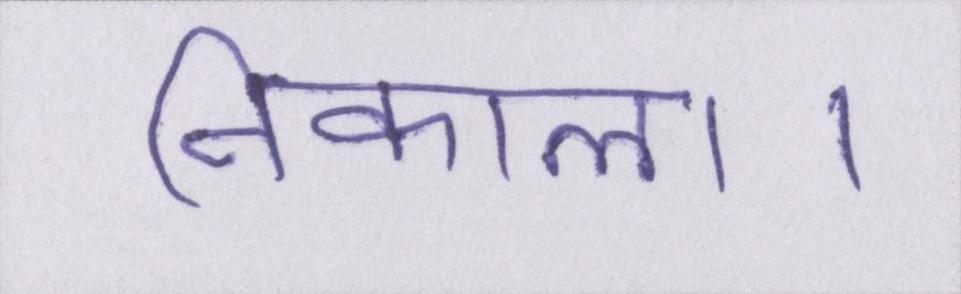 निकाला।